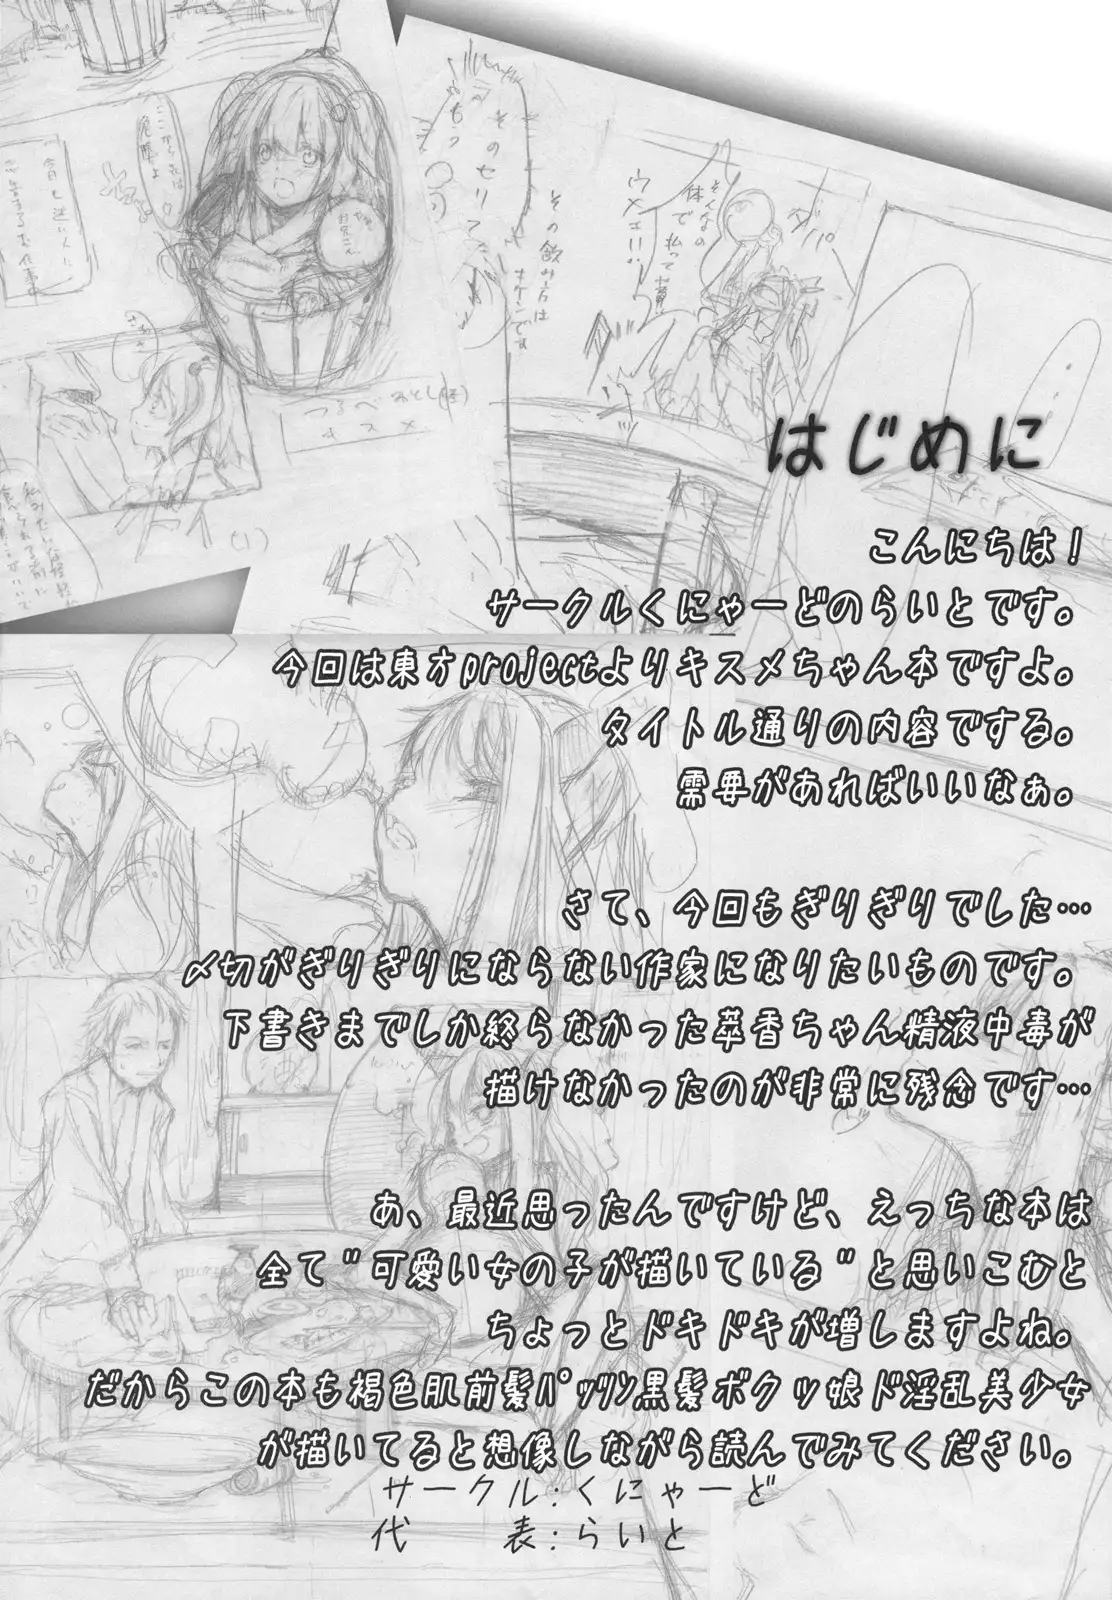 はじめに
こんにちは！
サークルくにゃーどのらいとです。
今回は東方projectよりキスメちゃん本ですよ。
タイトル通りの内容でする。
需要があればいいなぁ。
さて、今回もぎりぎりでした…
〆切がぎりぎりにならない作家になりたいものです。
下書きまでしか終らなかった萃香ちゃん精液中毒が
描けなかったのが非常に残念です…
あ、最近思ったんですけど、えっちな本は
全て"可愛い女の子が描いている"と思いこむと
ちょっとドキドキが増しますよね。
だからこの本も褐色肌前髪ﾊﾟｯﾂﾝ黒髪ボクッ娘ド淫乱美少女
が描いてると想像しながら読んでみてください。
サークル:くにゃーど
代　　表:らいと
そのセリフ
その飲み方は
キケンです
そんなもの
体で払って貰
ウメェ!!
ここから先は
危険よ
つるべおとし(怪)
キスメ
(1)